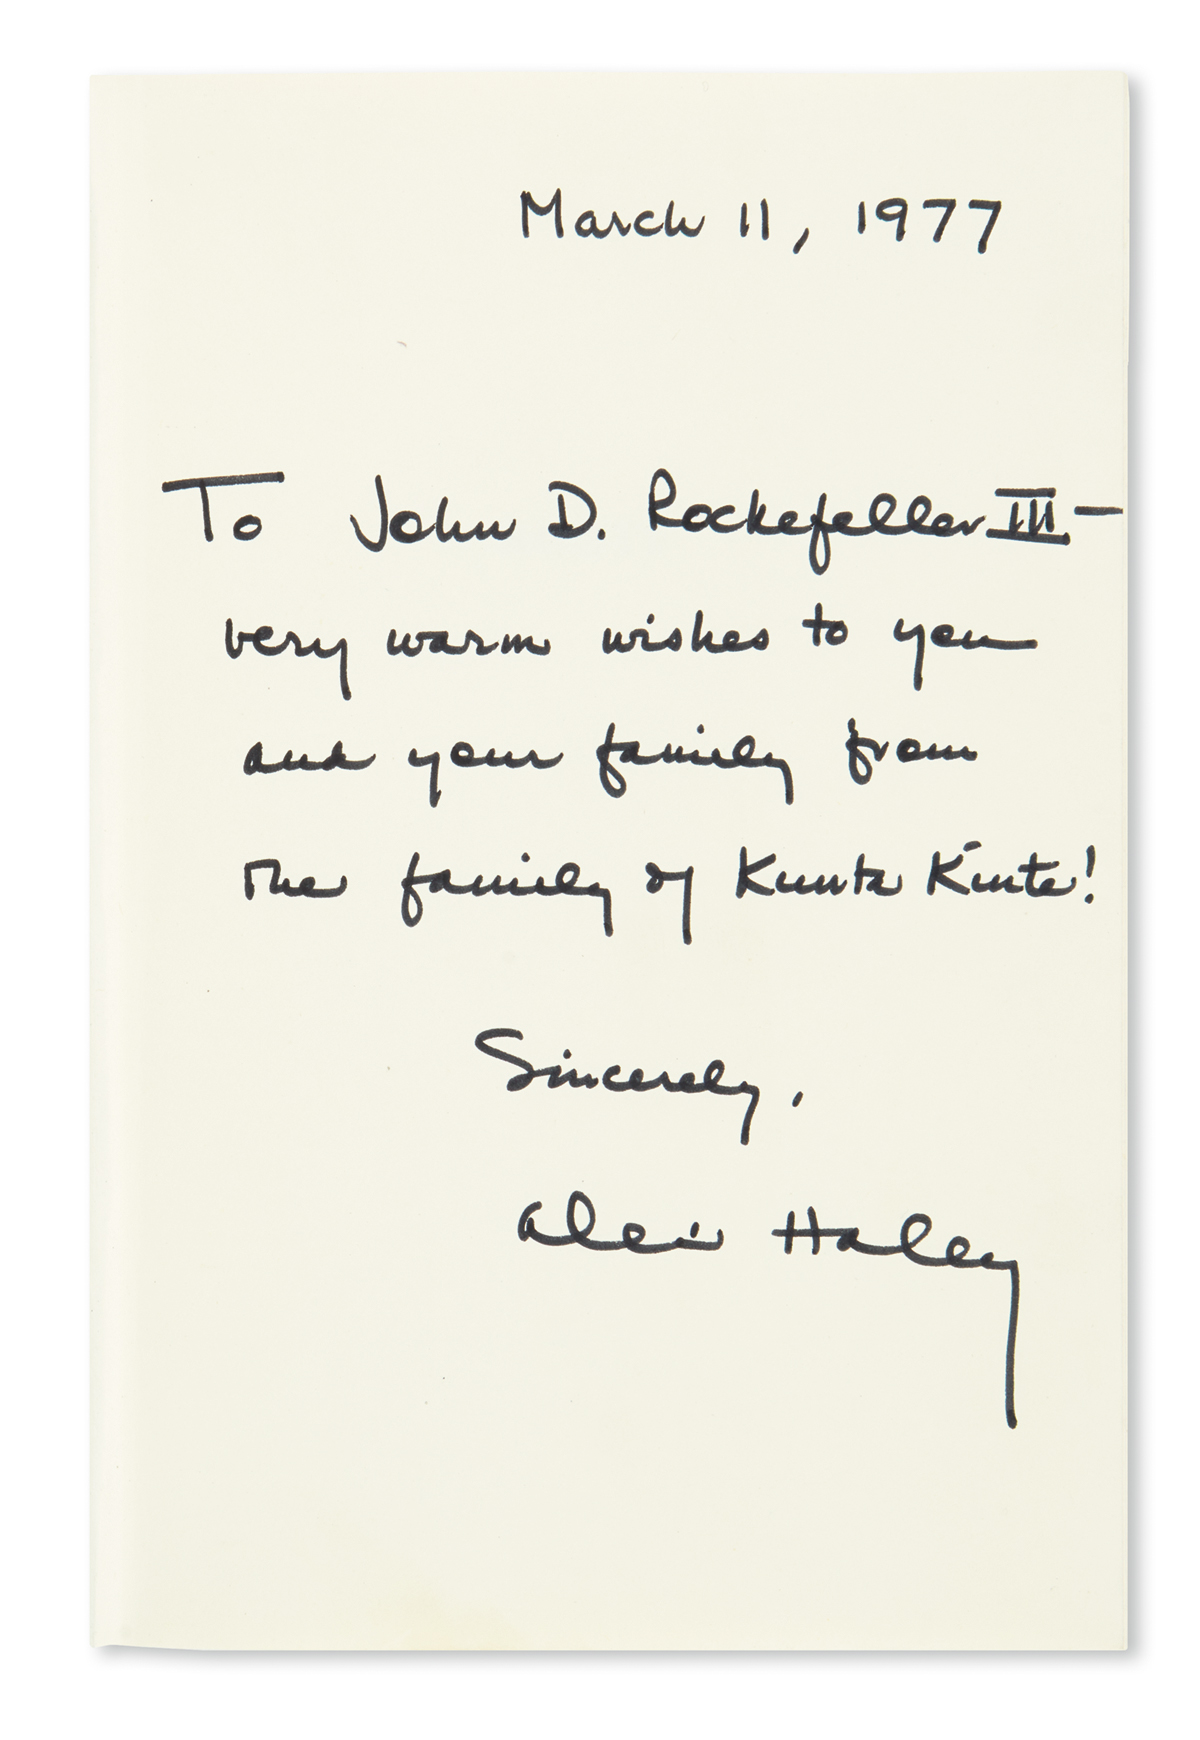 March 11, 1977
To John D. Rockefeller III —
very warm wishes to you
and your family from
the family of Kunta Kinte!
Sincerely,
Alex Haley